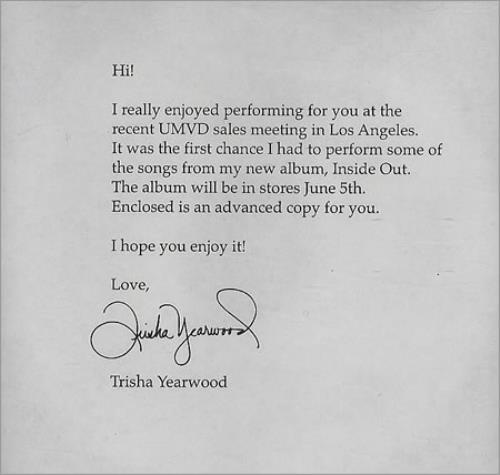 Hi!
I really enjoyed performing for you at the
recent UMVD sales meeting in Los Angeles.
It was the first chance I had to perform some of
the songs from my new album, Inside Out.
The album will be in stores June 5th.
Enclosed is an advanced copy for you.
I hope you enjoy it!
Love,
Trisha Yearwood
Trisha Yearwood